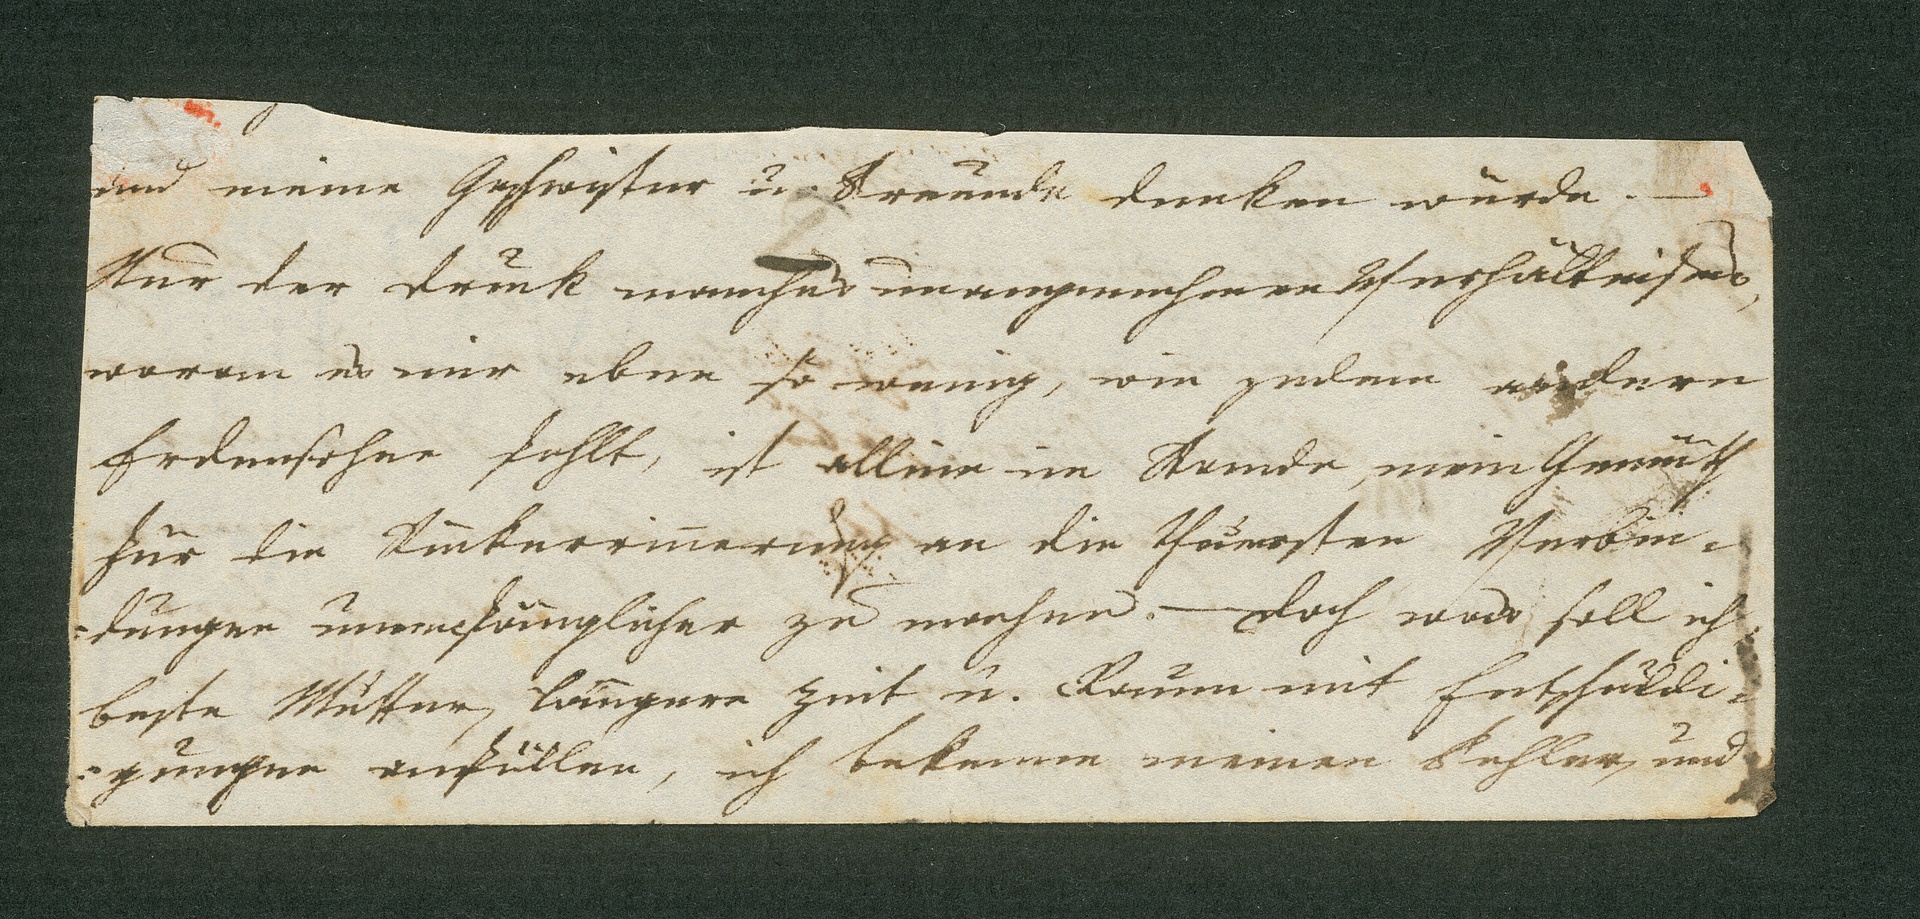 und meine Geschwister u. Freunde denken würde. —
Nur der Druck manches unangenehmen Verhältnises,
woran es mir eben so wenig, wie jedem andern
Erdensohne fehlt, ist allein im Stande, mein Gemüth
für die Rückerinnerung an die theuersten Verbin-
-dungen unempfänglicher zu machen. — Doch was soll ich
beste Mutter, längere Zeit u. Raum mit Entschuldi-
-gungen anfüllen, ich bekenne meinen Fehler, und